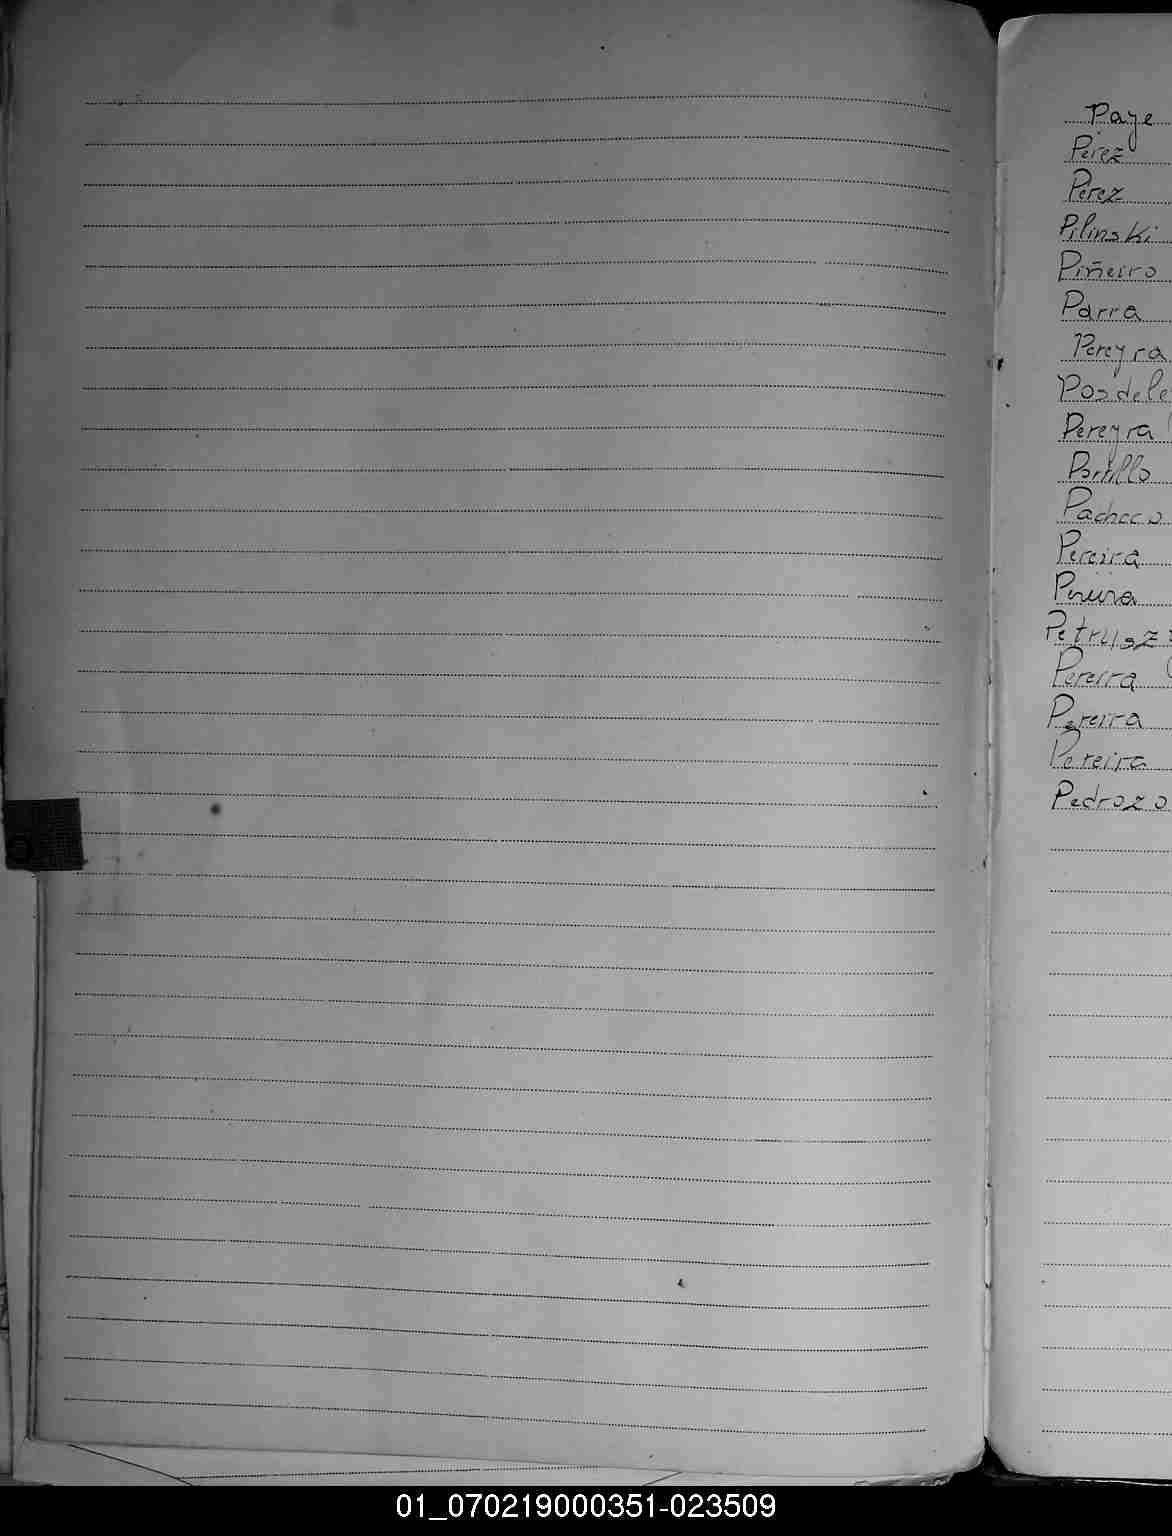 Paye
Perez
Perez
Pilinski
Piñeiro
Parra
Pereyra
Posdele
Pereyra
Portillo
Pacheco
Pereira
Pereira
Petrusz
Pereira
Pereira
Pereira
Pedrozo
01_070219000351-023509